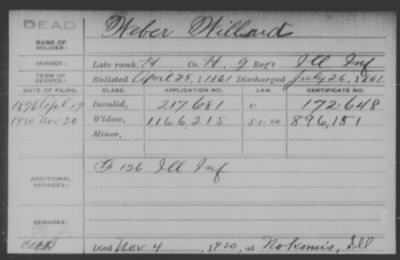 DEAD
NAME OF SOLDIER:
Weber Willard
SERVICE:
Late rank, Co. H, 9 Reg't Ill Inf
TERM OF SERVICE:
Enlisted April 25, 1861 Discharged July 26, 1861
DATE OF FILING. CLASS. APPLICATION NO. LAW. CERTIFICATE NO.
Invalid, 217681 172,648
1920 Nov 20 Widow, 1166,215 896,151
Minor,
ADDITIONAL SERVICES:
126 Ill Inf
REMARKS:
Died Nov 4, 1920, at Nokomis, Ill